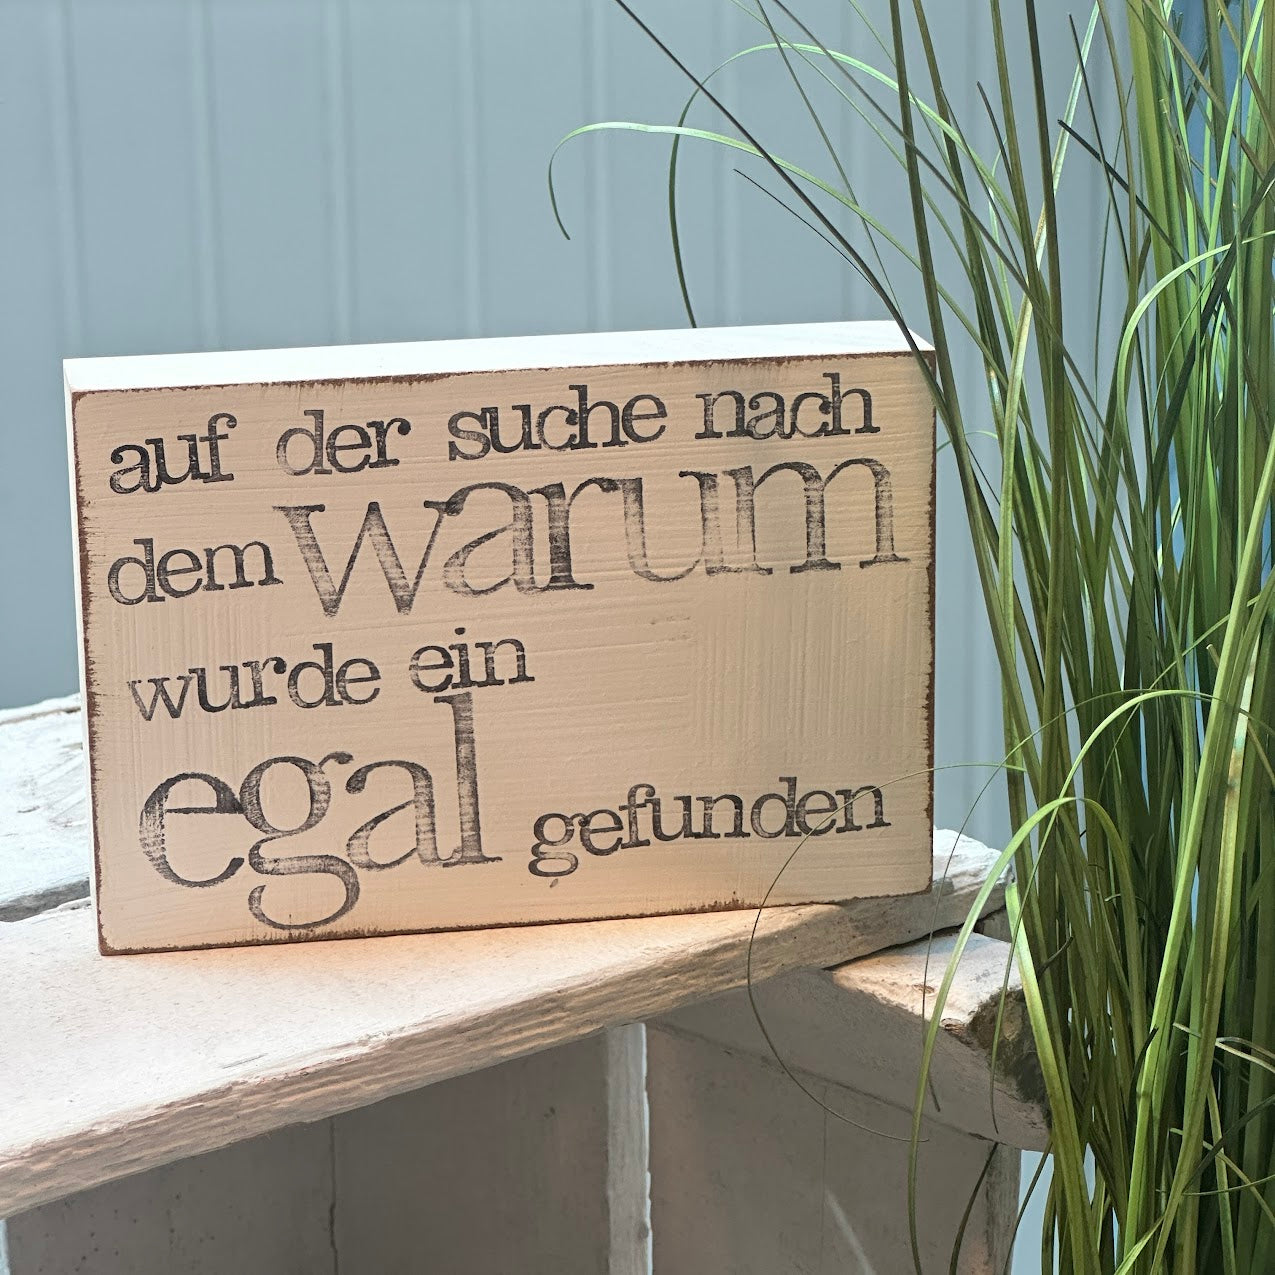 auf der suche nach
dem warum
wurde ein
egal gefunden